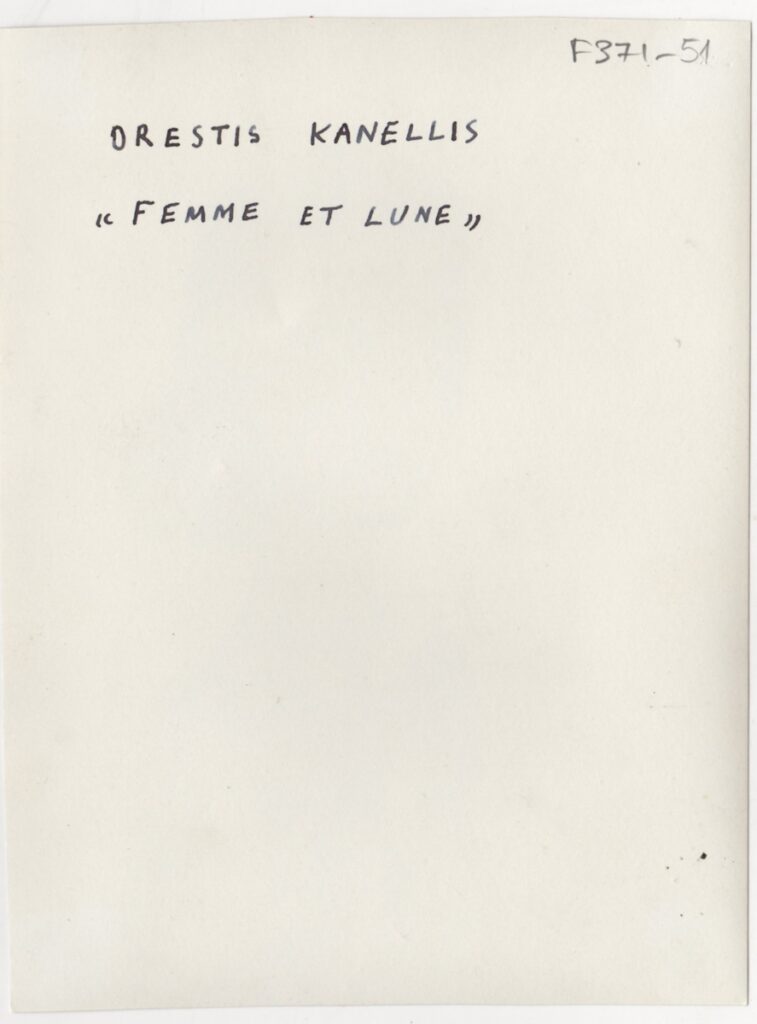 F371-51
ORESTIS KANELLIS
« FEMME ET LUNE »